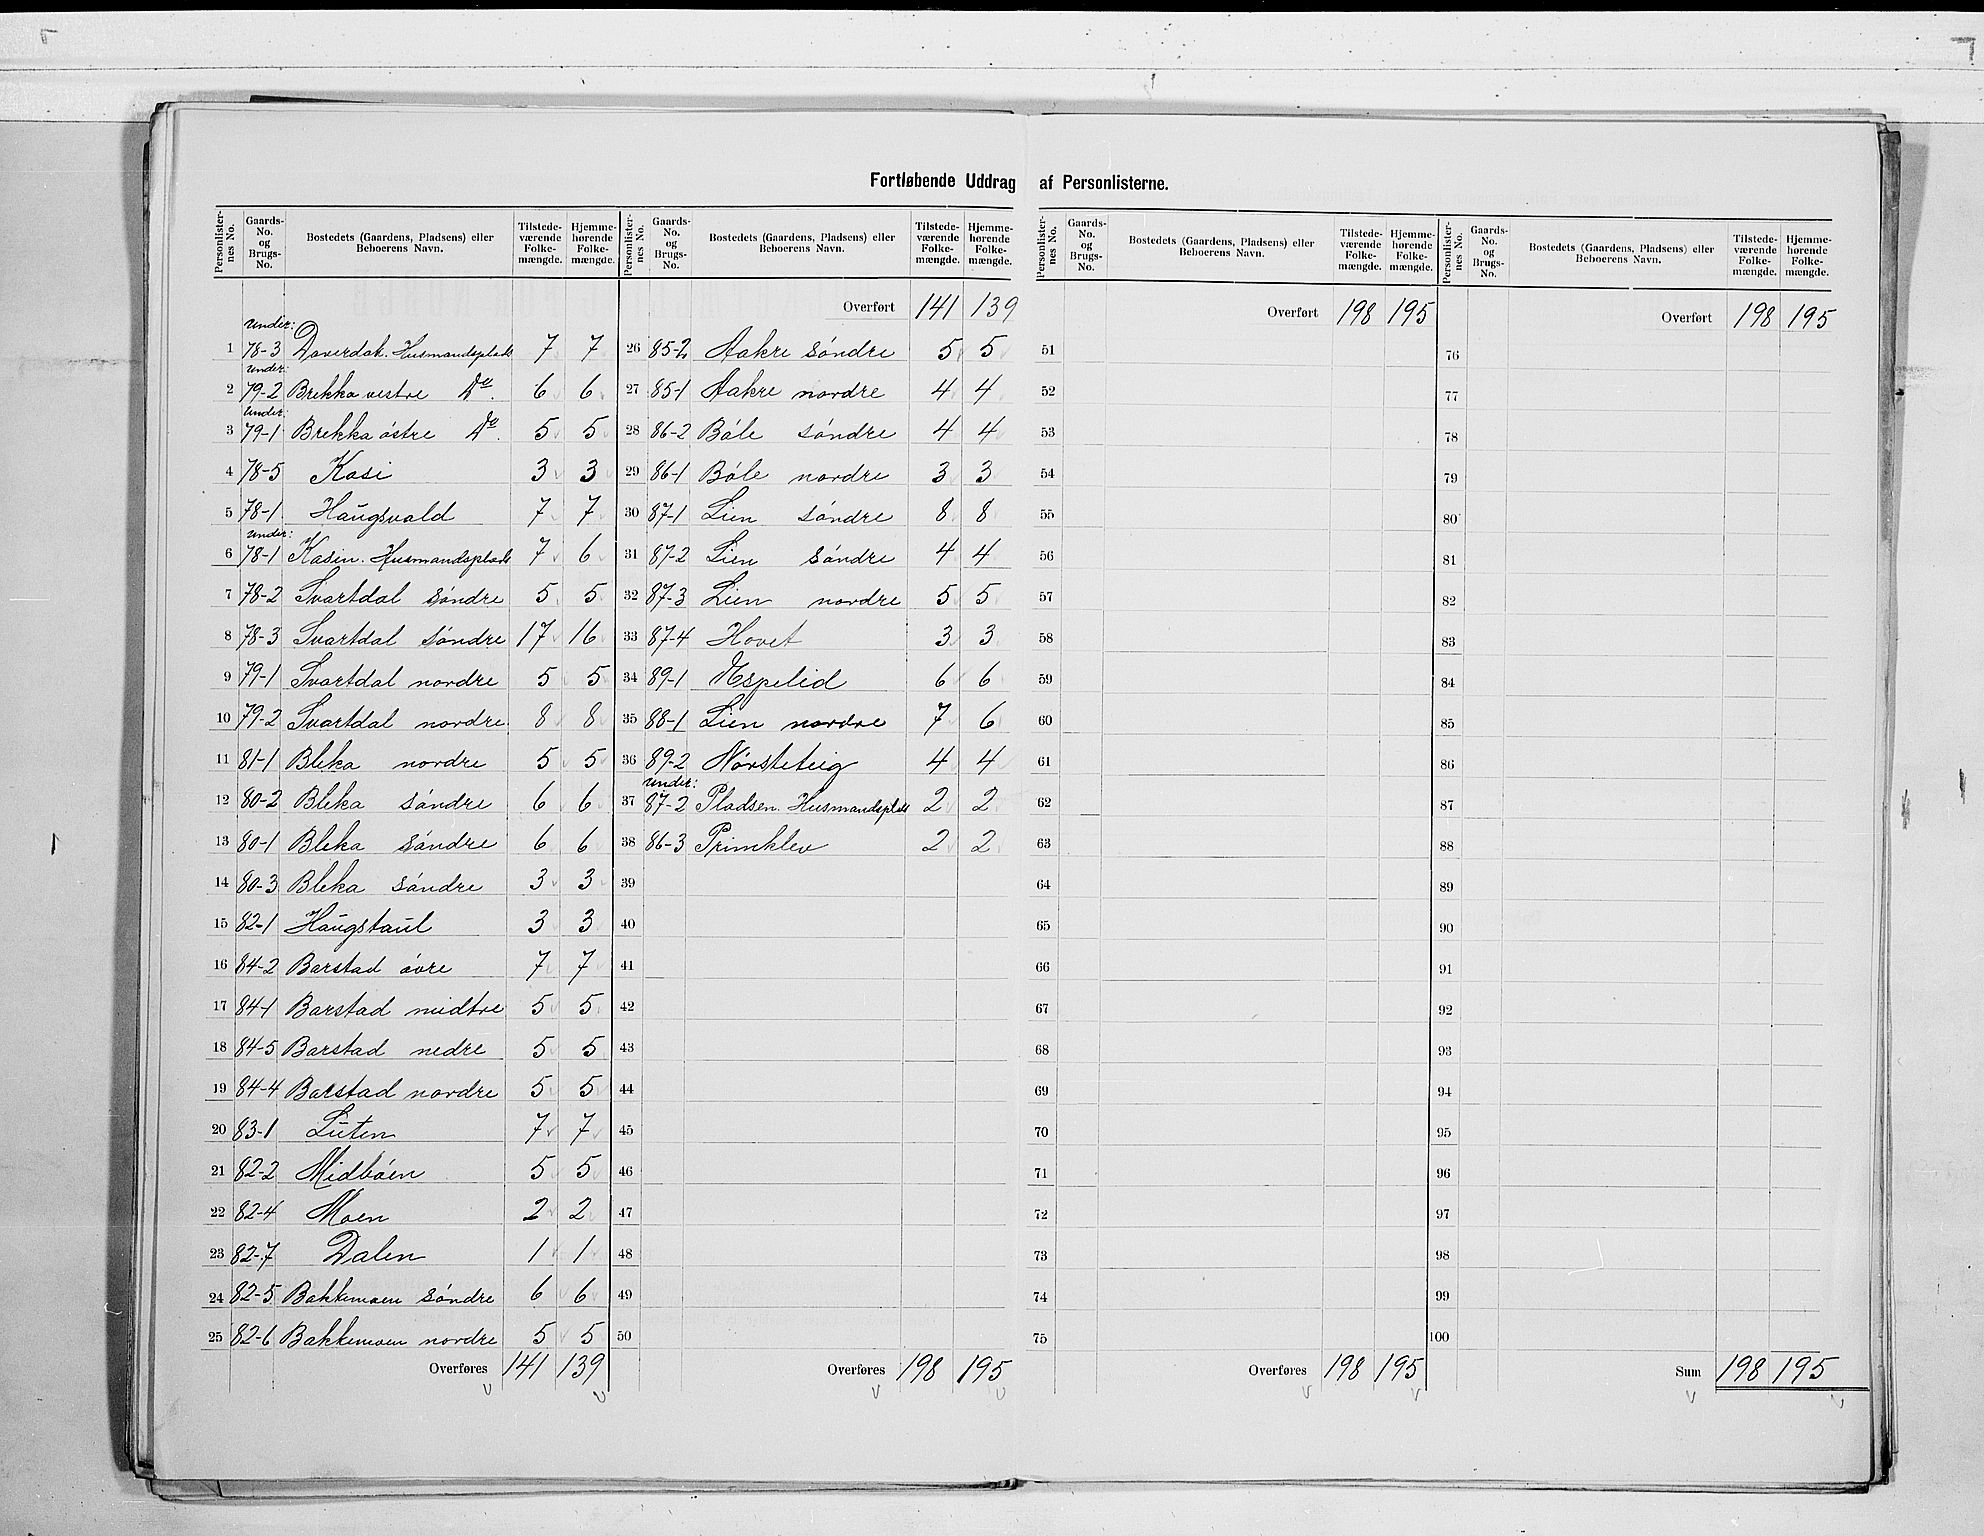 Fortløbende Uddrag af Personlisterne.
Personlister-nes No. | Gaards-No. og Brugs-No. | Bostedets (Gaardens, Pladsens) eller Beboerens Navn. | Tilstede-værende Folke-mængde. | Hjemme-hørende Folke-mængde.
1 under: 78-3 Daverdak. Husmandsplads 7 7
2 under: 79-2 Brekka vestre Do. 6 6
3 under: 79-1 Brekka østre Do. 5 5
4 78-5 Kasi 3 3
5 78-1 Haugsvald 7 7
6 under: 78-1 Kasin. Husmandsplads 7 6
7 78-2 Svartdal Søndre 5 5
8 78-3 Svartdal Søndre 17 16
9 79-1 Svartdal nordre 5 5
10 79-2 Svartdal nordre 8 8
11 81-1 Bleka nordre 5 5
12 80-2 Bleka Søndre 6 6
13 80-1 Bleka Søndre 6 6
14 80-3 Bleka Søndre 3 3
15 82-1 Haugstaul 3 3
16 84-2 Barstad øvre 7 7
17 84-1 Barstad midtre 5 5
18 84-5 Barstad nedre 5 5
19 84-4 Barstad nordre 5 5
20 83-1 Luten 7 7
21 82-2 Midbøen 5 5
22 82-4 Moen 2 2
23 82-7 Dalen 1 1
24 82-5 Bakkemoen Søndre 6 6
25 82-6 Bakkemoen nordre 5 5
Overføres 141 139
Personlister-nes No. | Gaards-No. og Brugs-No. | Bostedets (Gaardens, Pladsens) eller Beboerens Navn. | Tilstede-værende Folke-mængde. | Hjemme-hørende Folke-mængde.
Overført 141 139
26 85-2 Aakre Søndre 5 5
27 85-1 Aakre nordre 4 4
28 86-2 Bøle Søndre 4 4
29 86-1 Bøle nordre 3 3
30 87-1 Lien Søndre 8 8
31 87-2 Lien Søndre 4 4
32 87-3 Lien nordre 5 5
33 87-4 Hovet 3 3
34 89-1 Espelid 6 6
35 88-1 Lien nordre 7 6
36 89-2 Nørsteteig 4 4
37 under: 87-2 Pladsen. Husmandsplads 2 2
38 86-3 Primklev 2 2
39
40
41
42
43
44
45
46
47
48
49
50
Overføres 198 195
Personlister-nes No. | Gaards-No. og Brugs-No. | Bostedets (Gaardens, Pladsens) eller Beboerens Navn. | Tilstede-værende Folke-mængde. | Hjemme-hørende Folke-mængde.
Overført 198 195
51
52
53
54
55
56
57
58
59
60
61
62
63
64
65
66
67
68
69
70
71
72
73
74
75
Overføres 198 195
Personlister-nes No. | Gaards-No. og Brugs-No. | Bostedets (Gaardens, Pladsens) eller Beboerens Navn. | Tilstede-værende Folke-mængde. | Hjemme-hørende Folke-mængde.
Overført 198 195
76
77
78
79
80
81
82
83
84
85
86
87
88
89
90
91
92
93
94
95
96
97
98
99
100
Sum 198 195